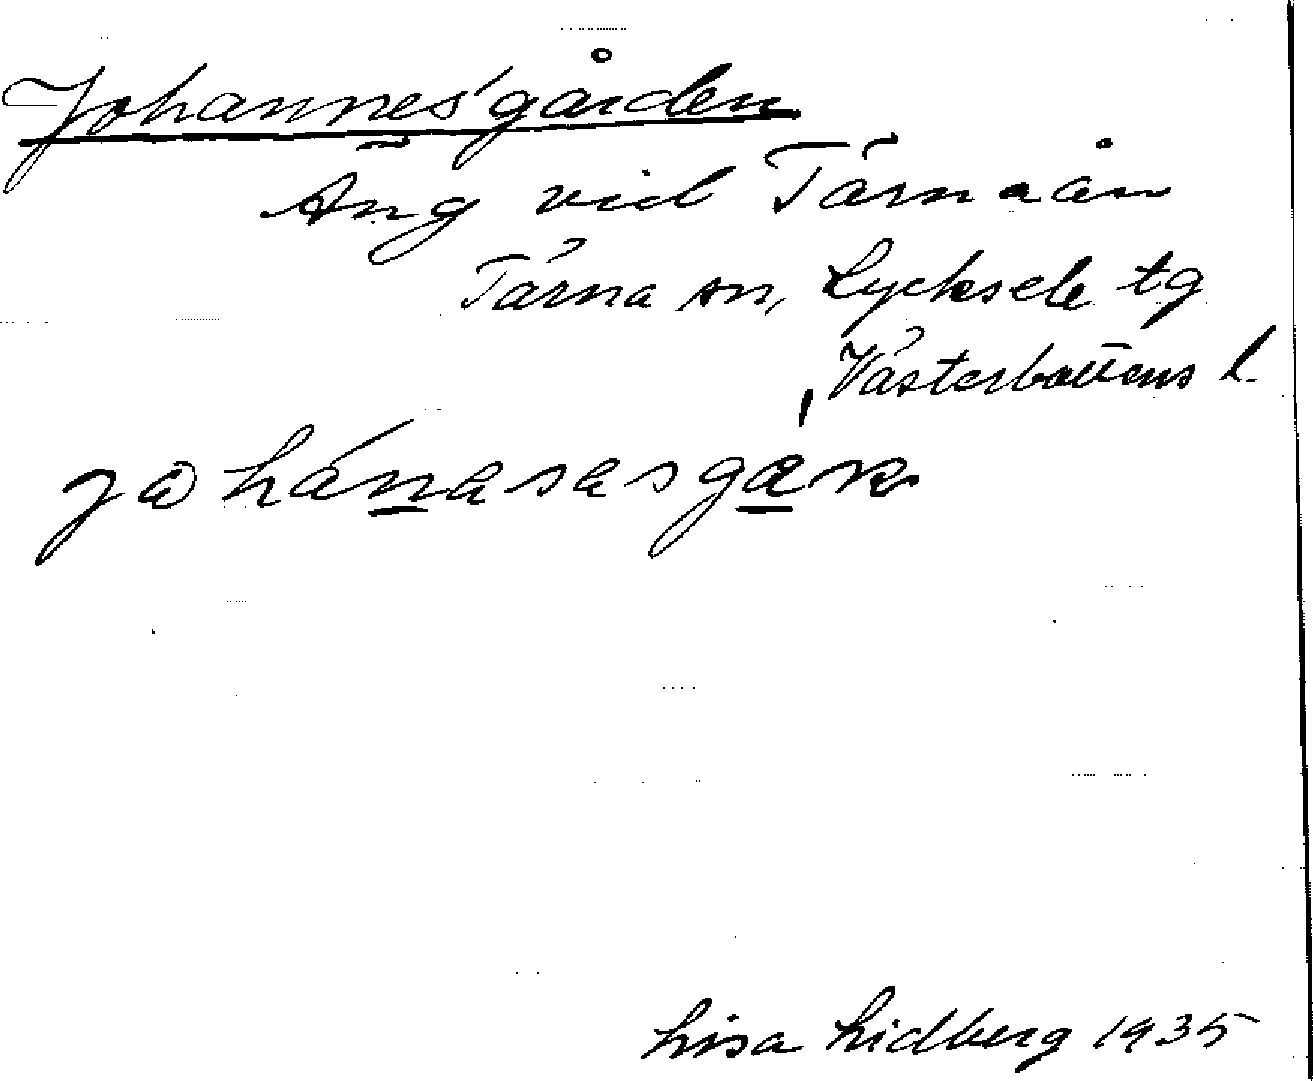 Johannes'gården
Äng vid Tärnaån
Tärna sn, Lycksele tg
Västerbottens l.
Lisa Lidberg 1935